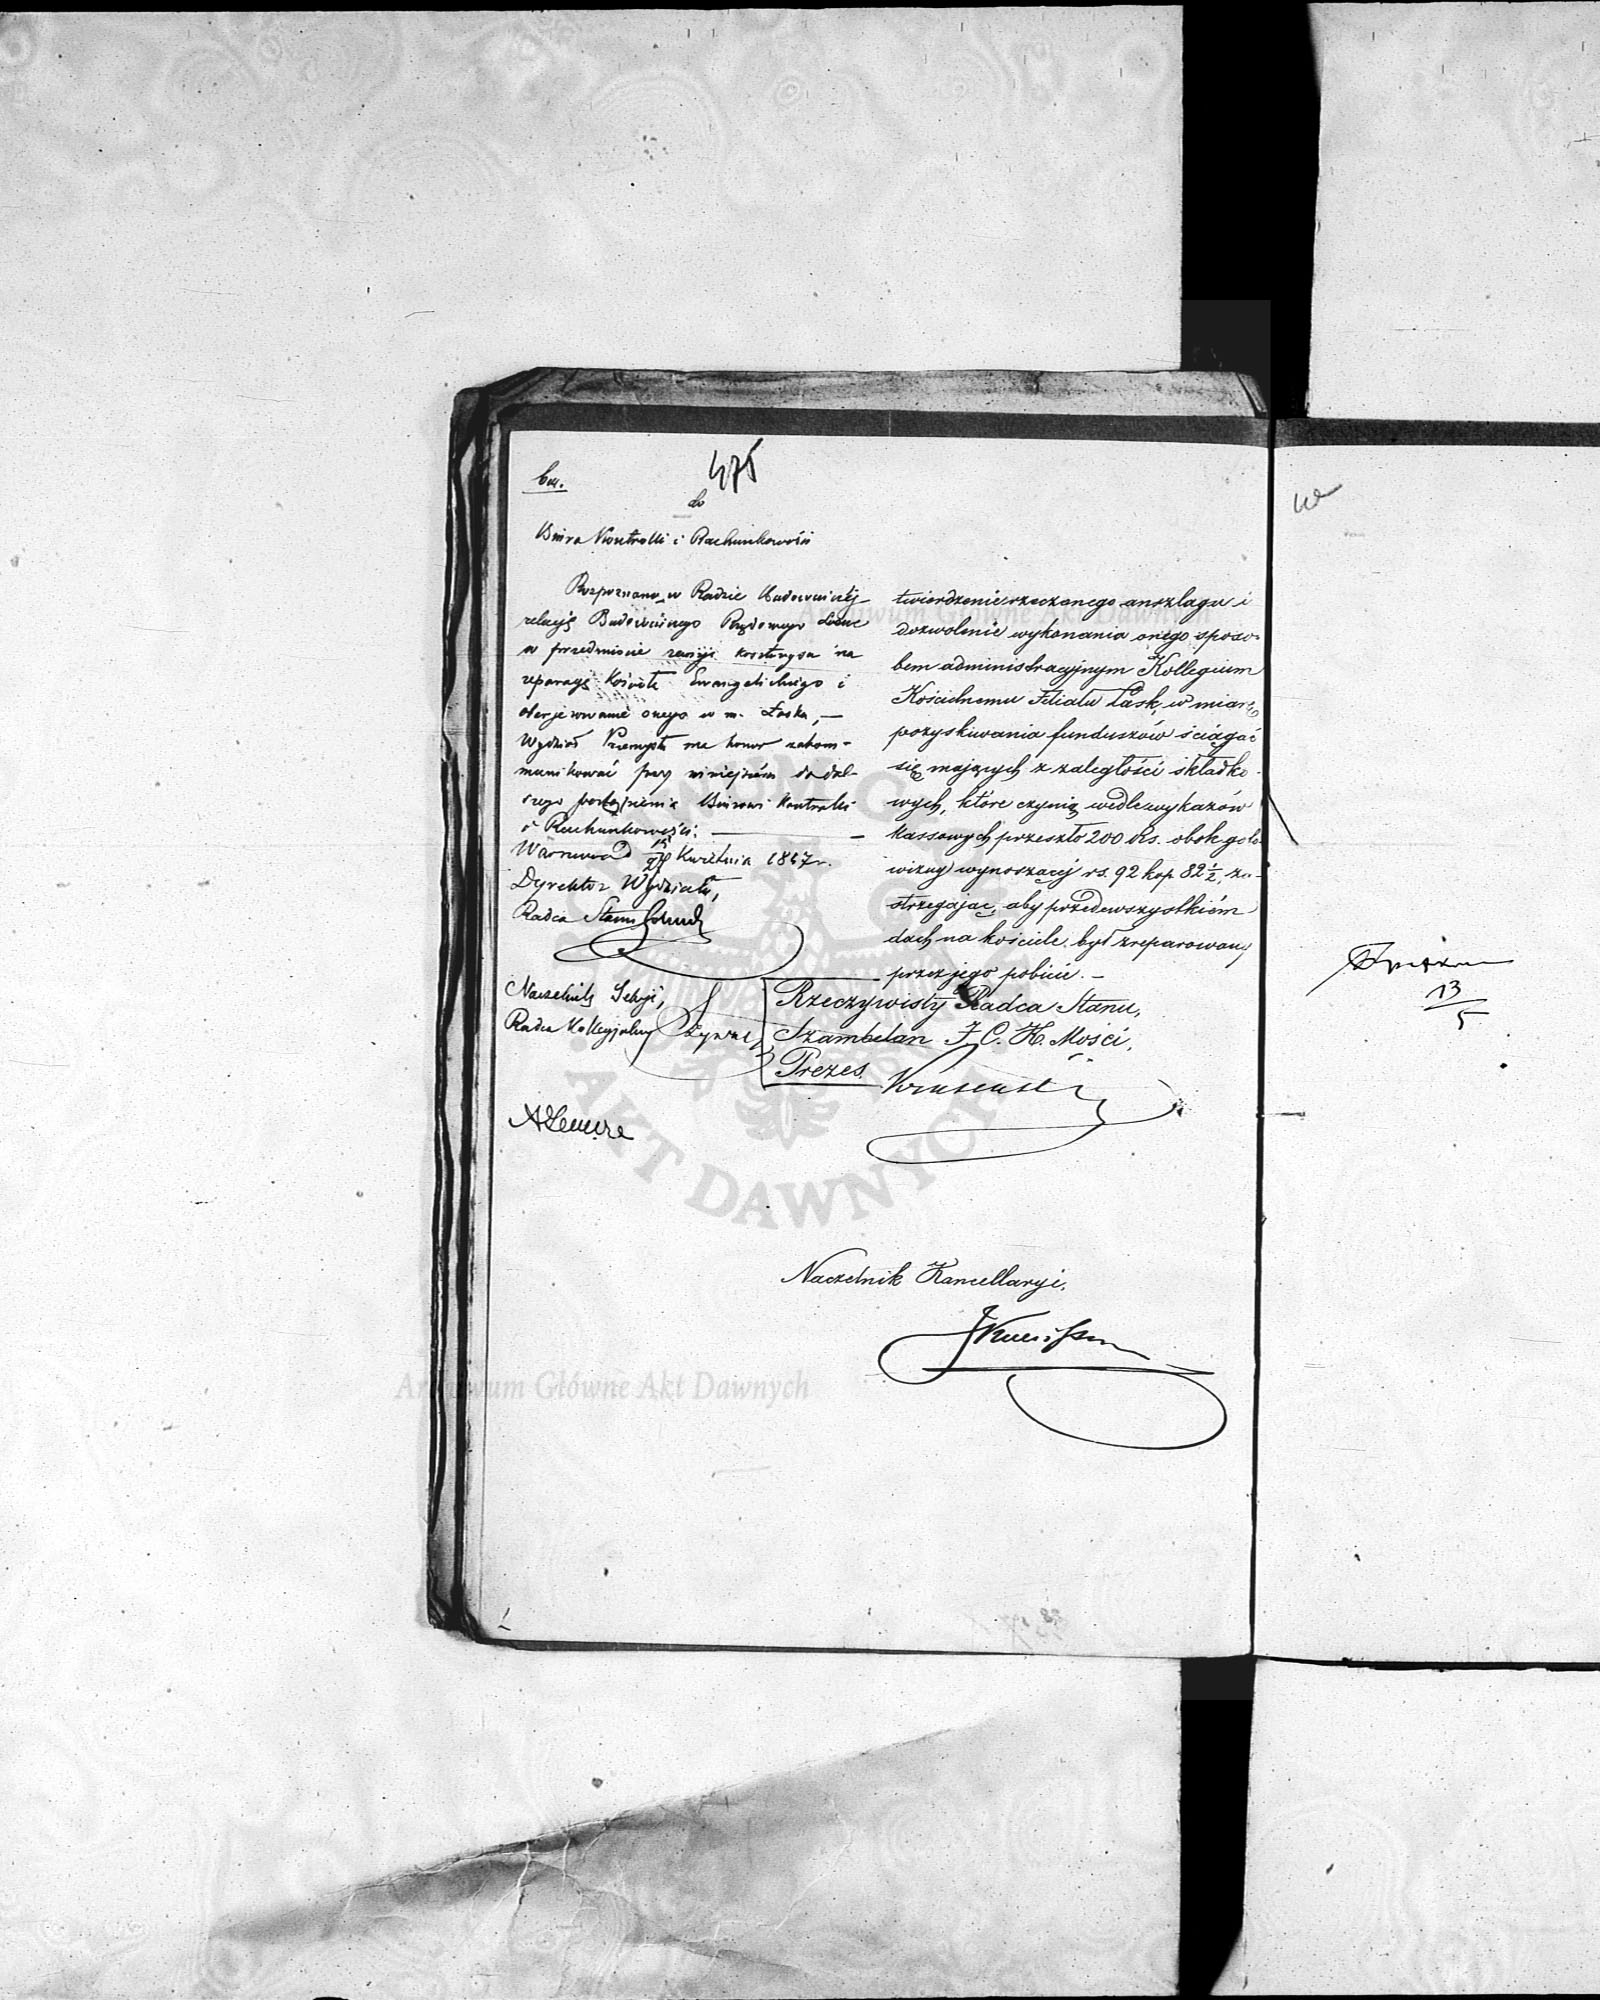 475
do
Biura Kontrolli i Rachunkowości
Rozpoznaną w Radzie Budowniczéj
relacyę Budowniczego Rządowego
w przedmiocie rewizyi kosztorysu na
reparacyę Kościoła Ewangelickiego i
onego w m. Łasku, —
Wydział Przemysłu ma honor zakom-
munikować przy niniejszém do dal-
szego postąpienia Biurowi Kontrolli
i Rachunkowości. —
Warszawa d 15/27 Kwietnia 1867 r.
Dyrektor Wydziału,
Radca Stanu
Naczelnik Sekcyi,
Radca Kollegijalny
twierdzenie rzeczonego anszlagu i
dozwolenie wykonania onego sposo-
bem administracyjnym Kollegium
Kościelnemu Filiału Łask, w miarę
pozyskiwania funduszów ściągać
się mających z zaległości składko-
wych, które czynią wedle wykazów
kassowych przeszło 200 Rs. obok goto-
wizny wynoszącéj rs. 92 kop. 82 ½, za-
strzegając, aby przedewszystkiém
dach na kościele był zreparowany
przez jego pobicie. —
Rzeczywisty Radca Stanu,
Szambelan J. C. K. Mości,
Prezes.
Naczelnik Kancellaryi,
13
5
Archiwum Główne Akt Dawnych
AKT DAWNYCH
Archiwum Główne Akt Dawnych